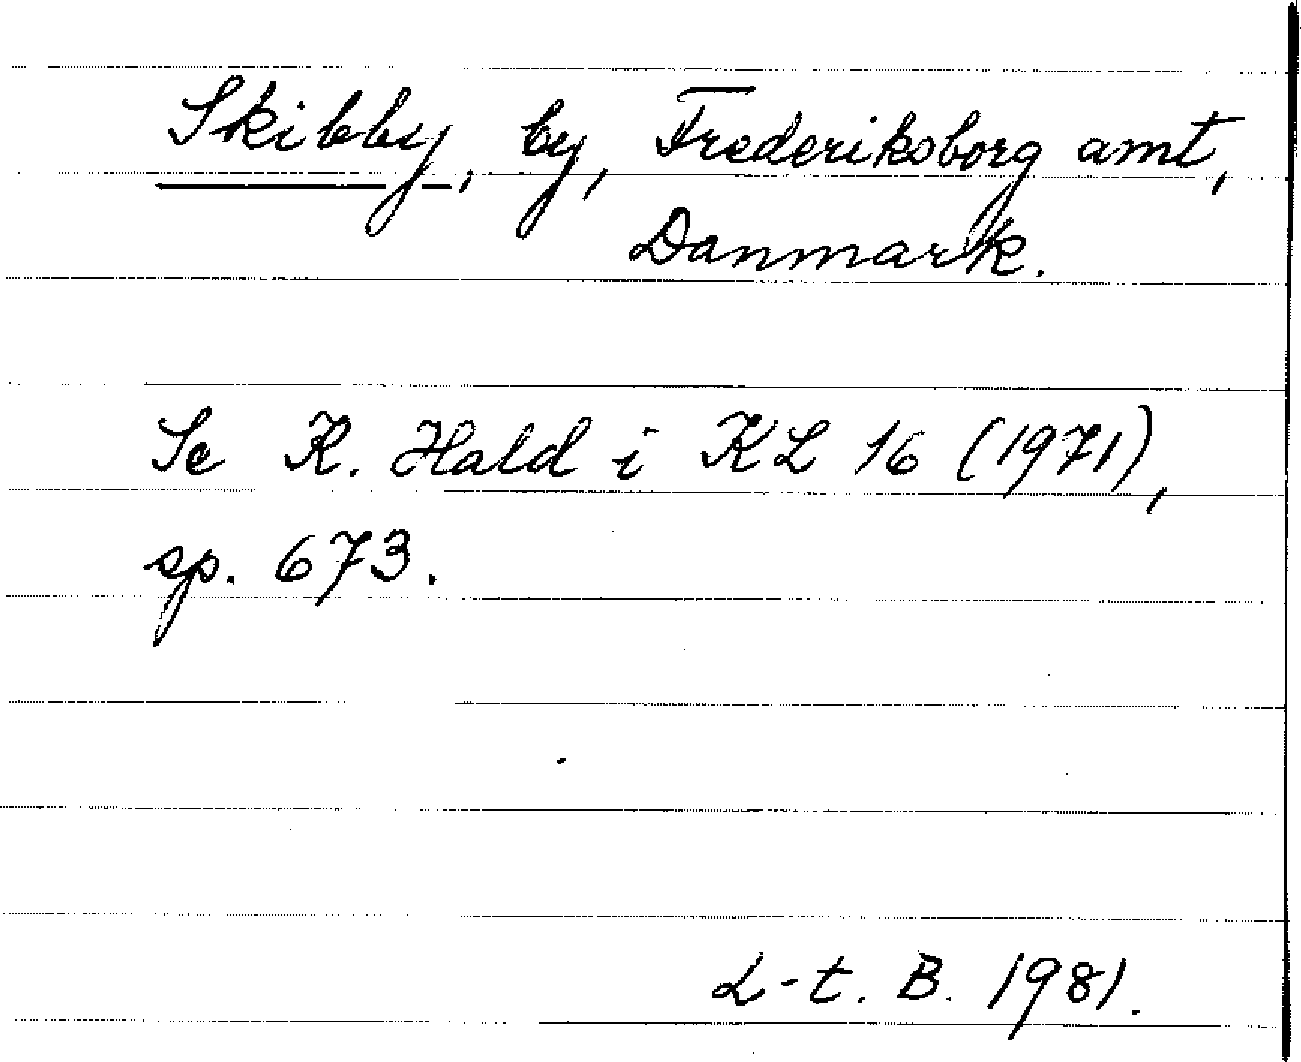 Skibby, by, Frederiksborg amt,
Danmark.
Se K. Hald i KL 16 (1971),
sp. 673.
L-t. B. 1981.